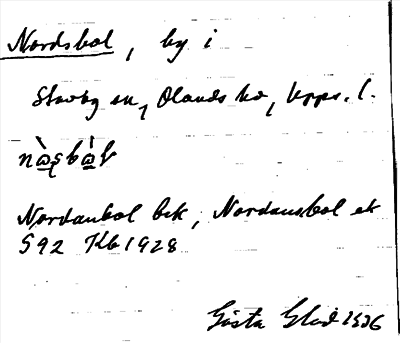 Nordsbol, by i
Stavby sn, Olands hd, Upps. l.
Nordanbol bek, Nordansbol ek
S92 Kb 1928
Gösta Glad 1936